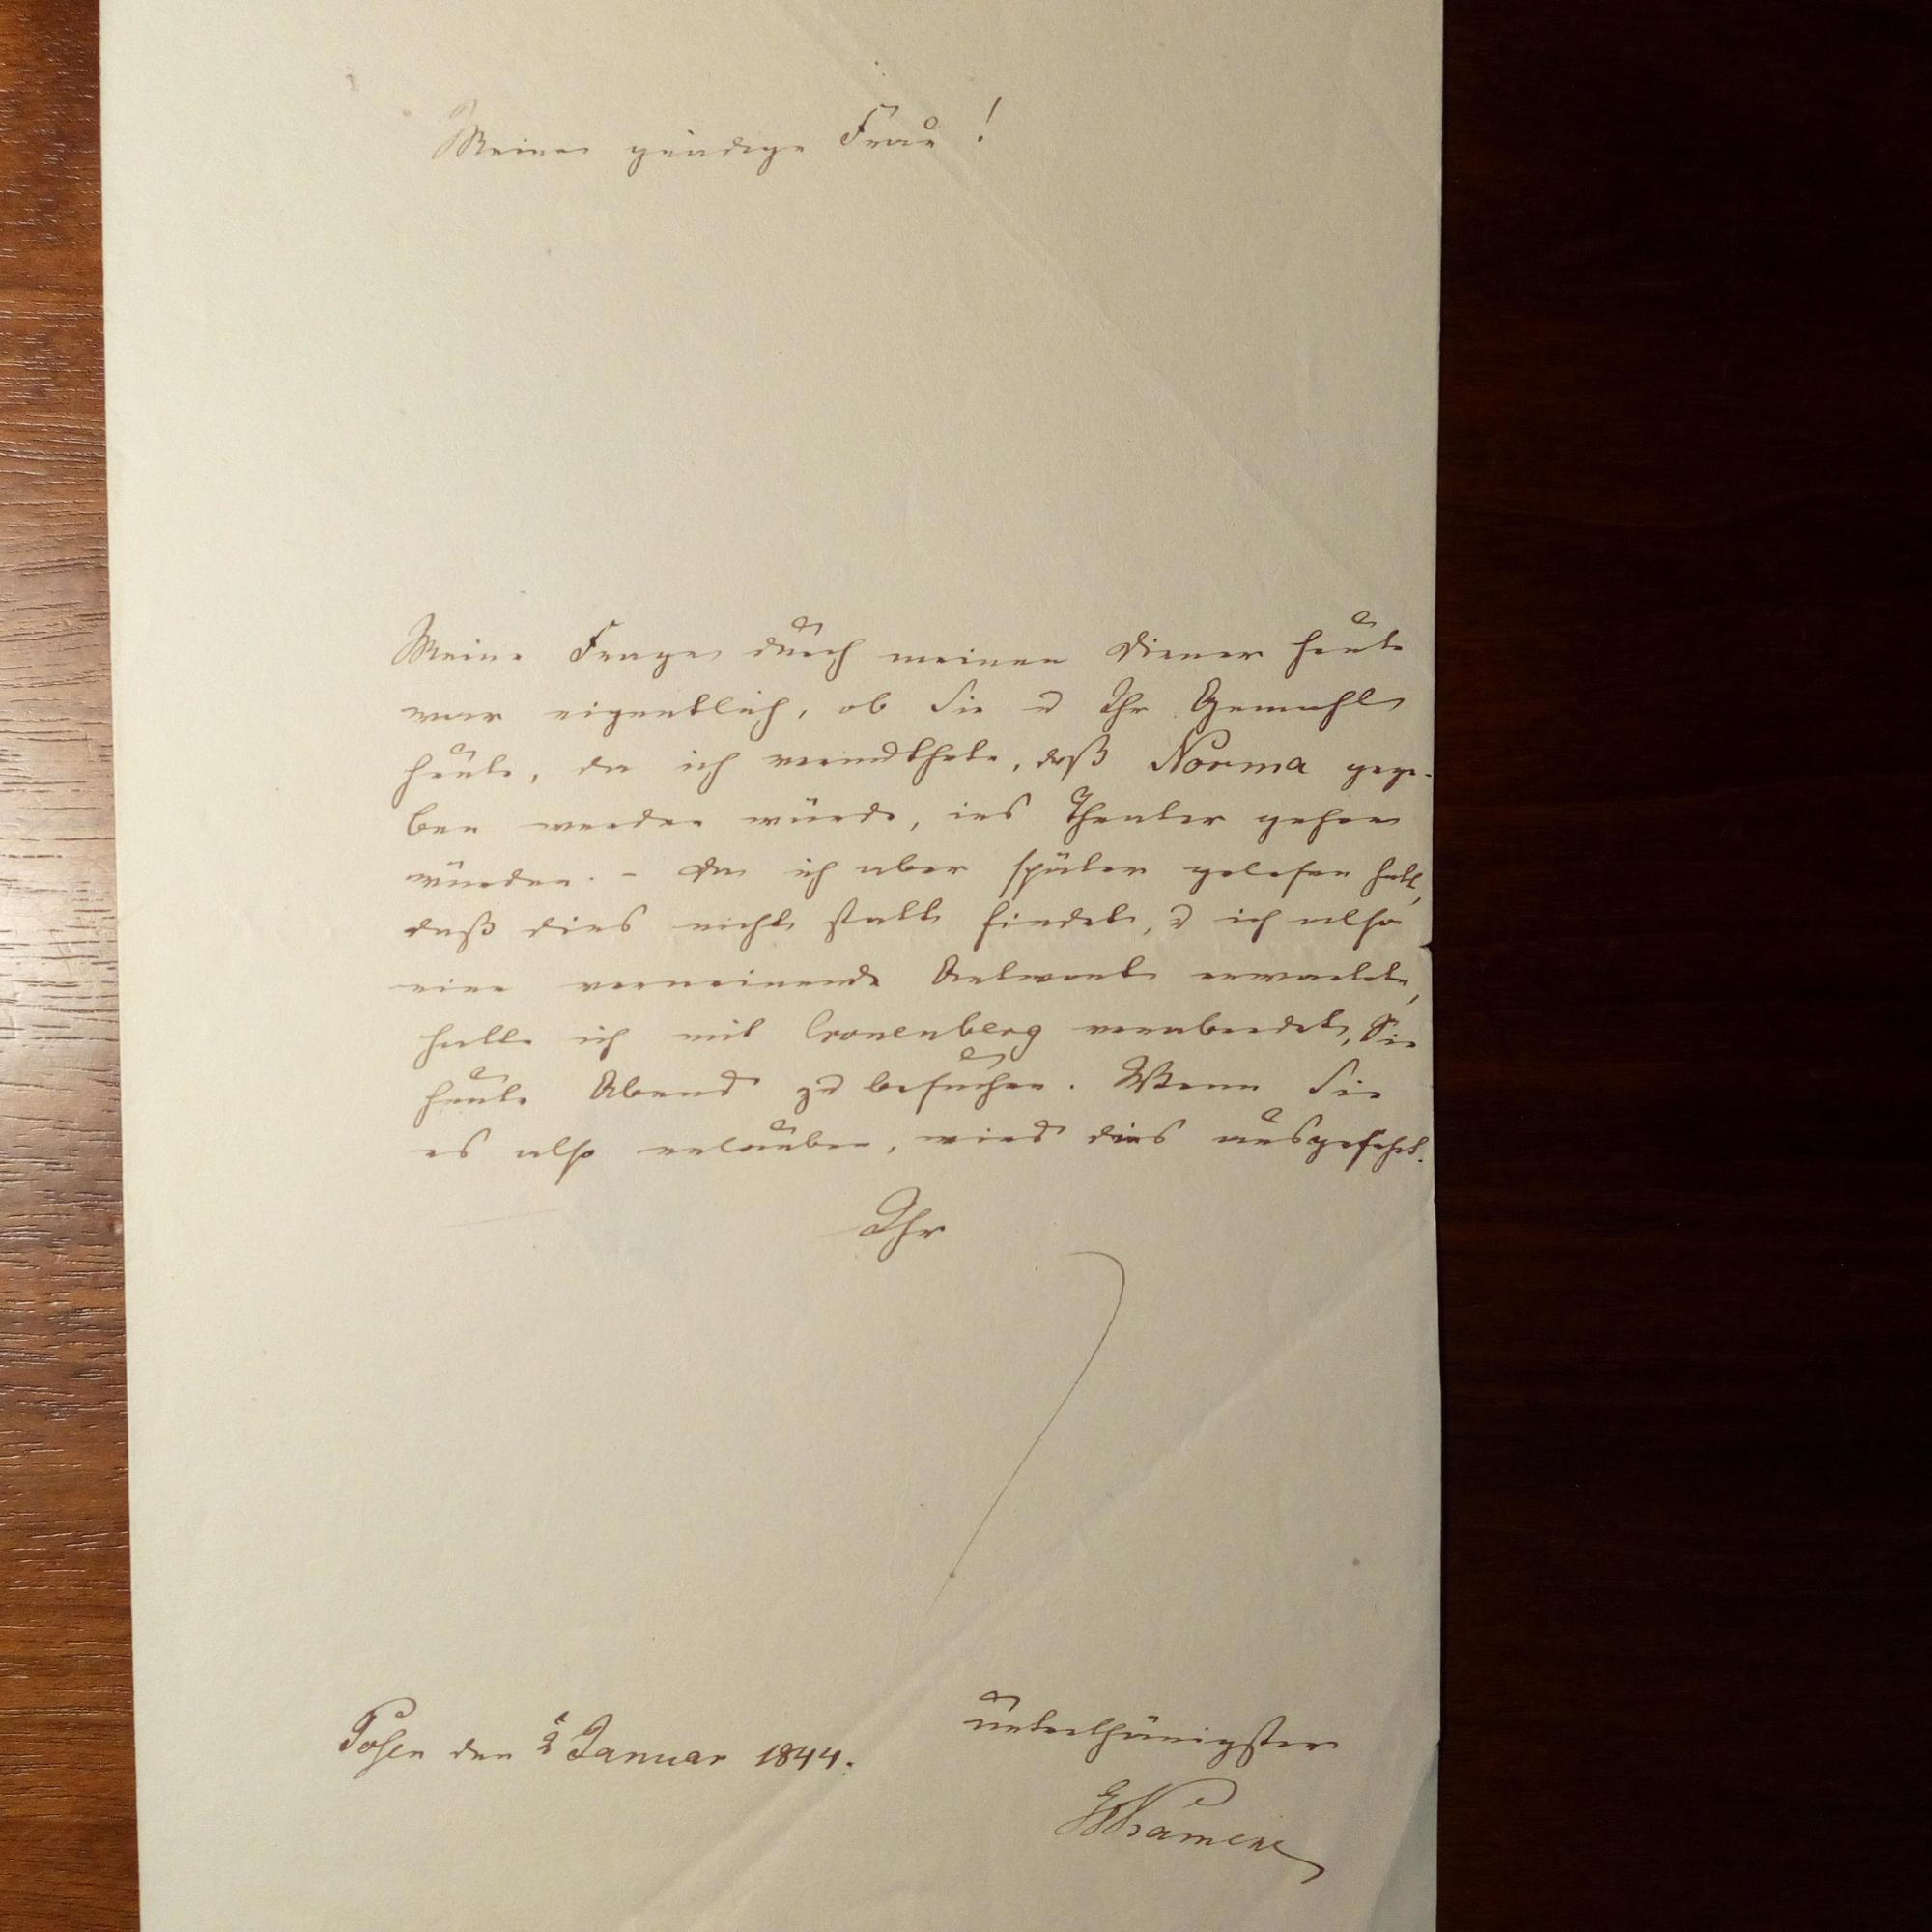 Meine gnädige Frau!
Meine Frage durch meinen Diener heute
war eigentlich, ob Sie u Ihr Gemahl
heute, da ich vermuthete, daß Norma gege-
ben werden würde, ins Theater gehen
würden. - Da ich aber später gelesen hatte,
daß dies nicht statt findet, u ich also
eine verneinende Antwort erwartete,
hatte ich mit Cronenberg verabredet, Sie
heute Abend zu besuchen. Wenn Sie
es also erlauben, wird dies ausgeführt.
Ihr
unterthänigster
Posen den 2 Januar 1844.